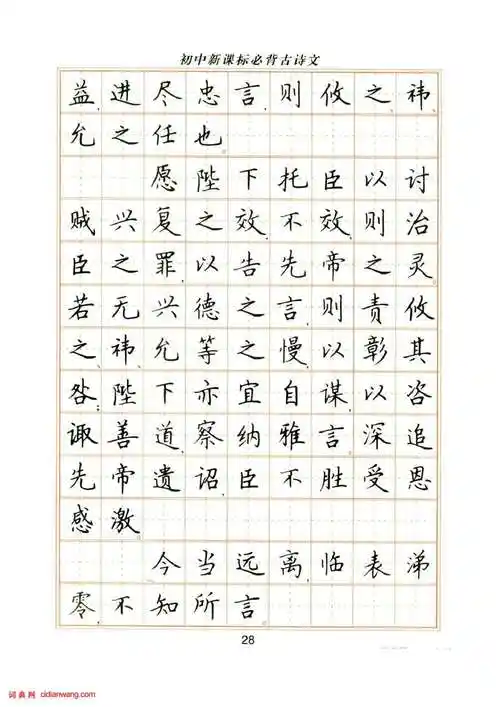 初中新课标必背古诗文
益,进尽忠言,则攸之,祎,
允之任也
愿陛下托臣以讨
贼兴复之效,不效,则治
臣之罪,以告先帝之灵
若无兴德之言,则责攸
之,祎,允等之慢,以彰其
咎;陛下亦宜自谋,以咨
诹善道,察纳雅言,深追
先帝遗诏,臣不胜受恩
感激
今当远离,临表涕
零,不知所言
28
词典网 cidianwang.com